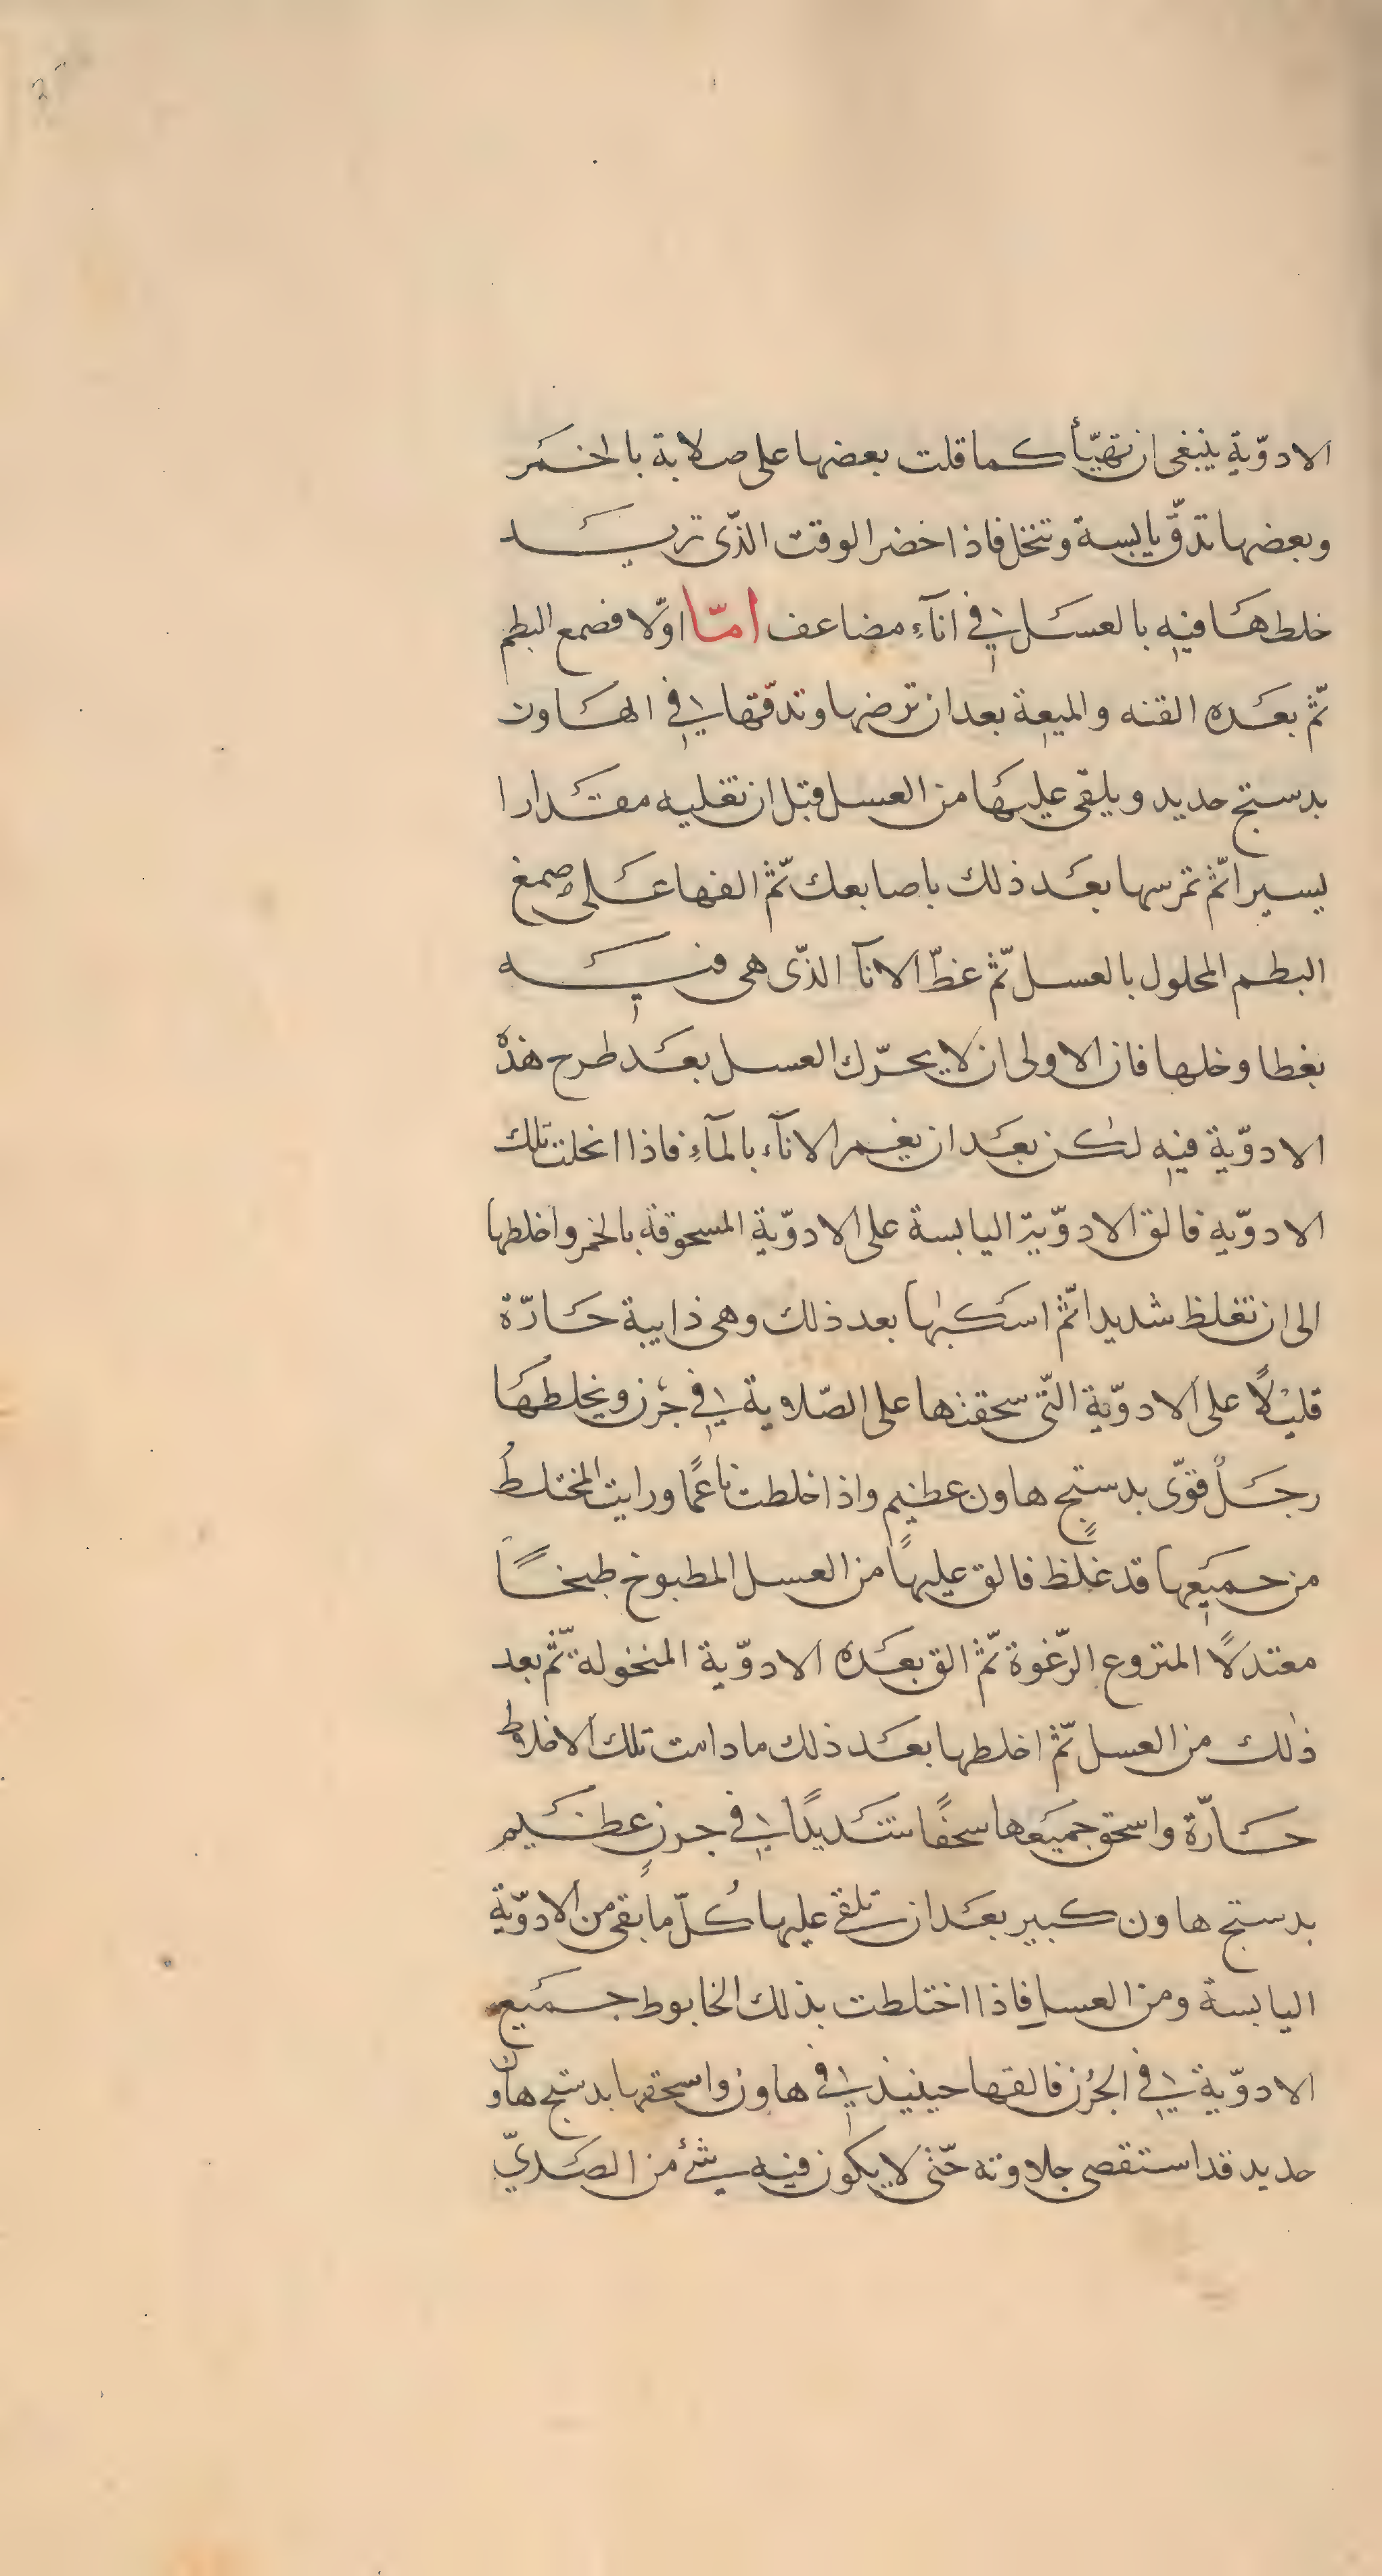 الادوّية ينبغى ان تهيّأ كما قلت بعضها على صلابة بالخمر
وبعضها تدقّ يابسة وتنخل فاذا اخضر الوقت الذّى تريد
خلطها فيه بالعسل فى انآءٍ مضاعف امّا اوّلا فصمع البطم
ثمّ بعده القنه والميعة بعد ان ترضها وتدقّها فى الهاون
بدستج حديد ويلقى عليها من العسل قبل ان تغليه مقدارا
يسيرا ثمّ تمرسها بعد ذلك باصابعك ثمّ الفها على صمغ
البطم المحلول بالعسل ثمّ غطّ الانآ الذّى هى فيه
بغطا وخلها فان الاولى ان لا يحرّك العسل بعد طرح هذه
الادوّية فيه لكن بعد ان يغمر الانآء بالمآءِ فاذا انحلت تلك
الادوّيه فالق الادوّية اليابسة على الادوّية المسحوقة بالخمر واخلطها
الى ان تغلظ شديدا ثمّ اسكبها بعد ذلك وهى ذايبة حارّة
قليلًا على الادوّية التّى سحقتها على الصّلاوية فى جُرن ويخلطها
رجلٌ قوّى بدستجٍ هاون عظيم واذا خلطت ناعمًا ورايت المختلطُ
من جميعها قد غلظ فالق عليها من العسل المطبوخ طبخًا
معتدلًا المنزوع الرّغوة ثمّ الق بعده الادوّية المنخولة ثّم بعد
ذٰلك من العسل ثمّ اخلطها بعد ذلك ما دامت تلك الاخلاط
حارّة واسحق جميعها سحقًا شديدًا فى جرنٍ عظيم
بدستج هاون كبير بعد ان تلقى عليها كُلّ ما بقى من الادوّية
اليابسة ومن العسل فاذا اختلطت بذلك الخابوط جميع
الادوّية فى الجُرن فالقها حينيذ فى هاون واسحقها بدستج هاون
حديد قد استقصى جلاوته حتّى لا يكون فيه شئ من الصديّ